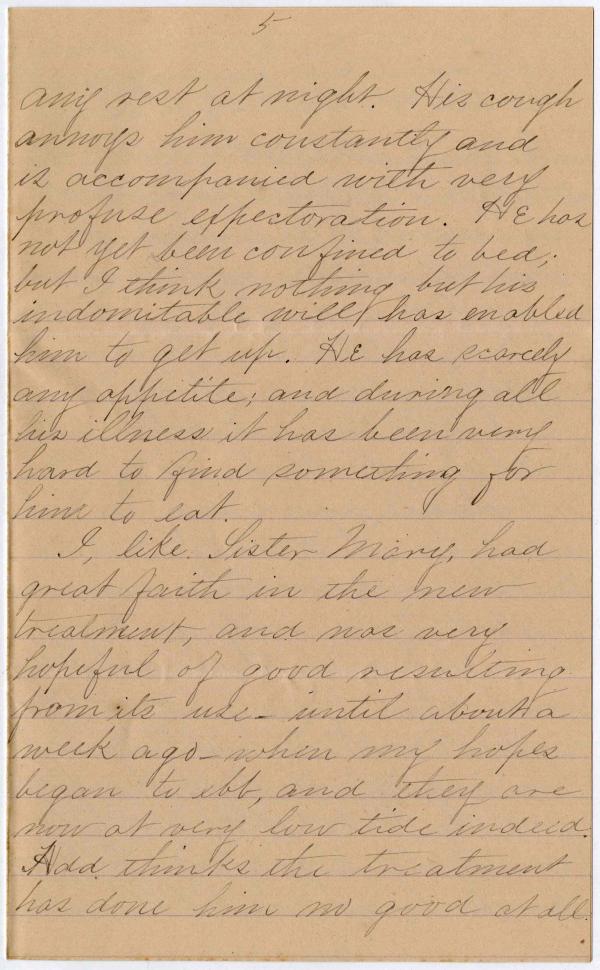 5
any rest at night. His cough
annoys him constantly and
is accompanied with very
profuse expectoration. He has
not yet been confined to bed;
but I think nothing but his
indomitable will has enabled
him to get up. He has scarcely
any appetite; and during all
his illness it has been very
hard to find something for
him to eat.
I, like Sister Mary, had
great faith in the new
treatment, and was very
hopeful of good resulting
from its use – until about a
week ago – when my hopes
began to ebb, and they are
now at very low tide indeed.
Add. thinks the treatment
has done him no good at all.